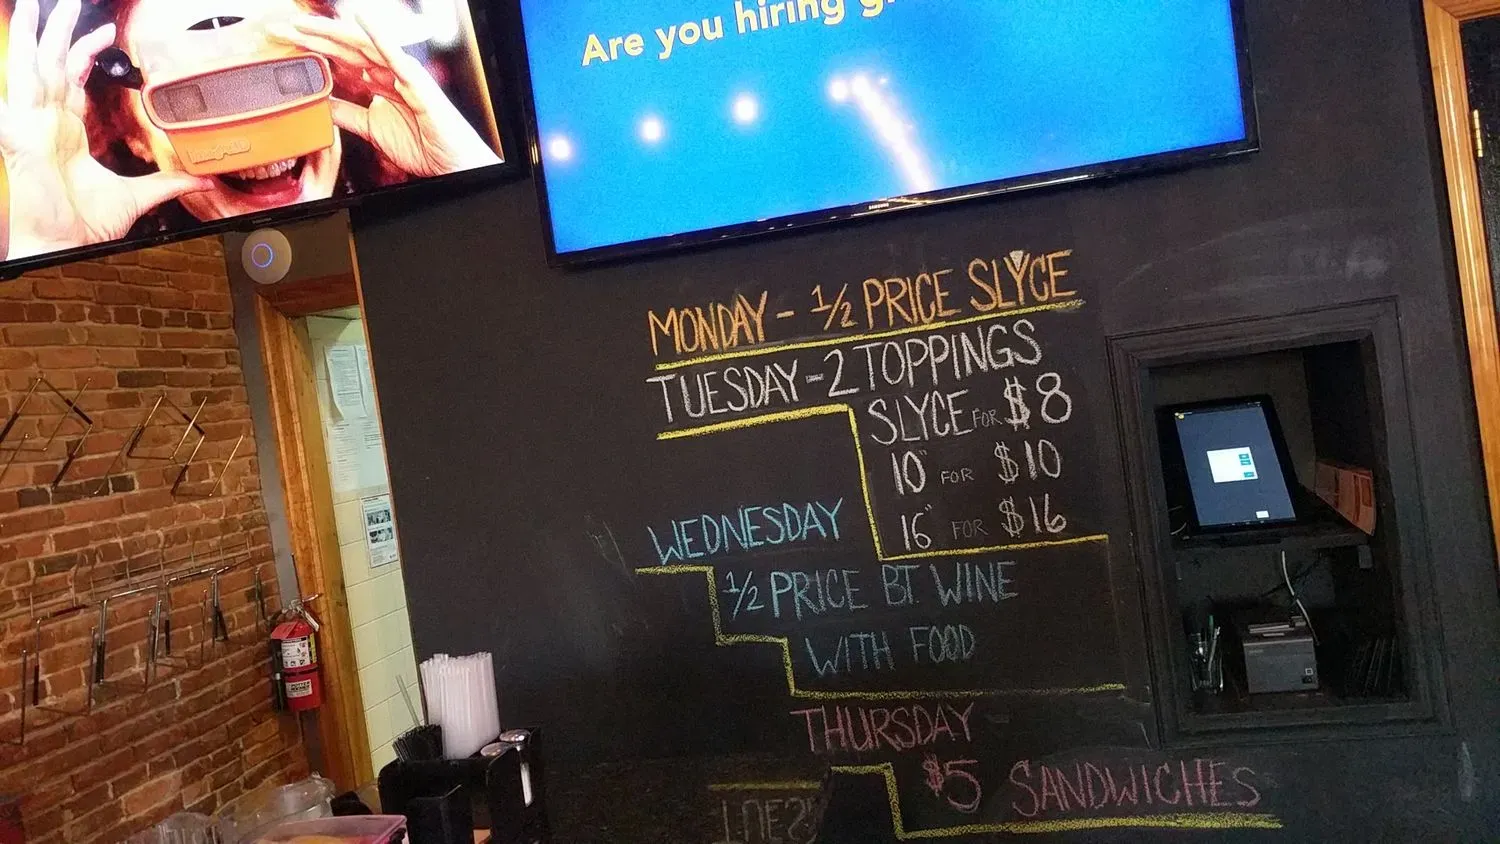 Are you hiring
SAMSUNG
MONDAY - 1/2 PRICE SLYCE
TUESDAY - 2 TOPPINGS
SLYCE FOR $8
10" FOR $10
16" FOR $16
WEDNESDAY
1/2 PRICE BT. WINE
WITH FOOD
THURSDAY
$5 SANDWICHES